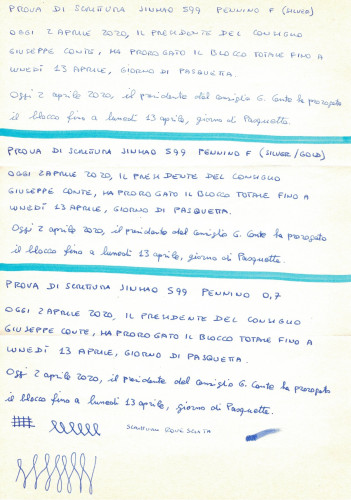 PROVA DI SCRITTURA JINHAO 599 PENNINO F (SILVER)
OGGI 2 APRILE 2020, IL PRESIDENTE DEL CONSIGLIO
GIUSEPPE CONTE, HA PROROGATO IL BLOCCO TOTALE FINO A
LUNEDÌ 13 APRILE, GIORNO DI PASQUETTA.
Oggi 2 aprile 2020, il presidente del consiglio G. Conte ha prorogato
il blocco fino a lunedì 13 aprile, giorno di Pasquetta.
PROVA DI SCRITTURA JINHAO 599 PENNINO F (SILVER/GOLD)
OGGI 2 APRILE 2020, IL PRESIDENTE DEL CONSIGLIO
GIUSEPPE CONTE, HA PROROGATO IL BLOCCO TOTALE FINO A
LUNEDÌ 13 APRILE, GIORNO DI PASQUETTA.
Oggi 2 aprile 2020, il presidente del consiglio G. Conte ha prorogato
il blocco fino a lunedì 13 aprile, giorno di Pasquetta.
PROVA DI SCRITTURA JINHAO 599 PENNINO 0,7
OGGI 2 APRILE 2020, IL PRESIDENTE DEL CONSIGLIO
GIUSEPPE CONTE, HA PROROGATO IL BLOCCO TOTALE FINO A
LUNEDÌ 13 APRILE, GIORNO DI PASQUETTA.
Oggi 2 aprile 2020, il presidente del consiglio G. Conte ha prorogato
il blocco fino a lunedì 13 aprile, giorno di Pasquetta.
SCRITTURA ROVESCIATA